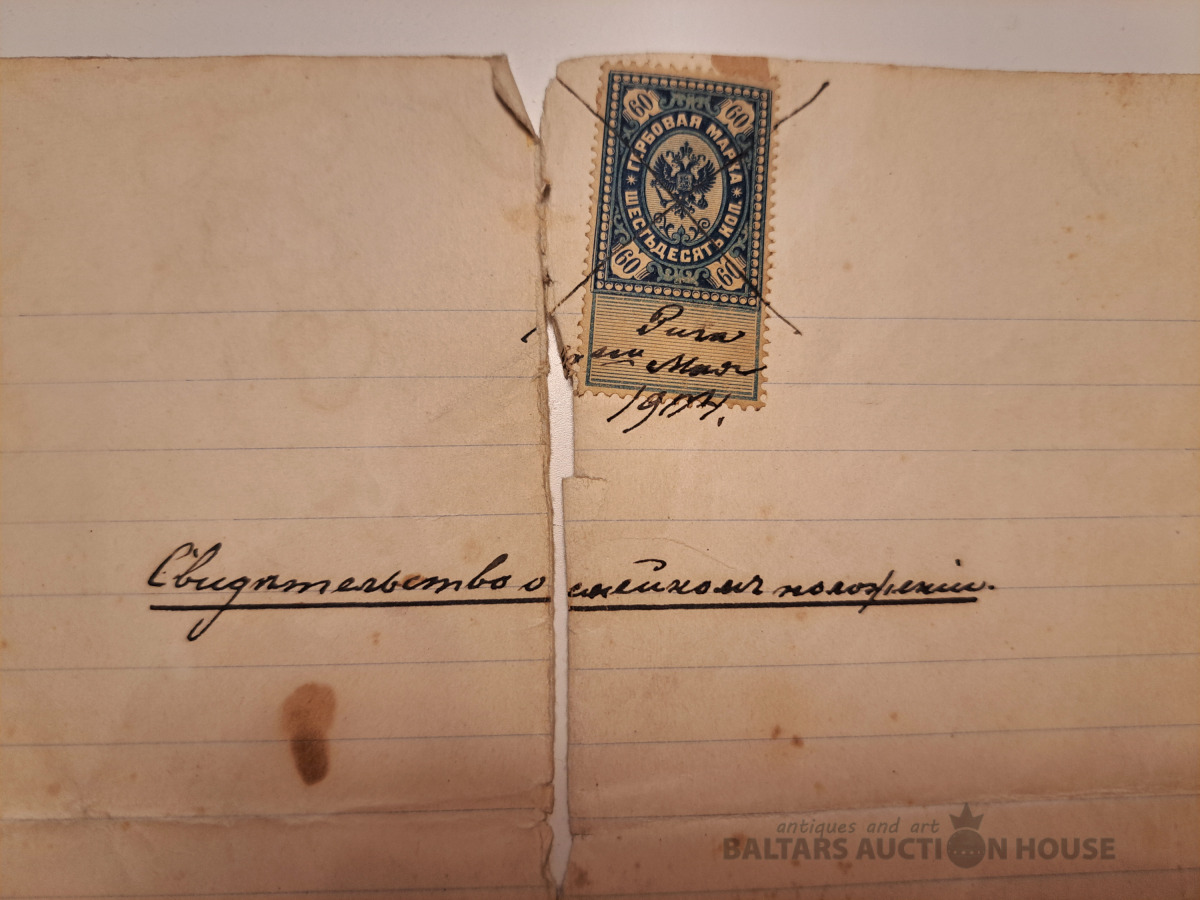 60 60
ГЕРБОВАЯ МАРКА
ШЕСТЬДЕСЯТЪ КОП.
60 60
Рига
Мая
1904.
Свидѣтельство о семейномъ положеніи.
antiques and art
BALTARS AUCTION HOUSE